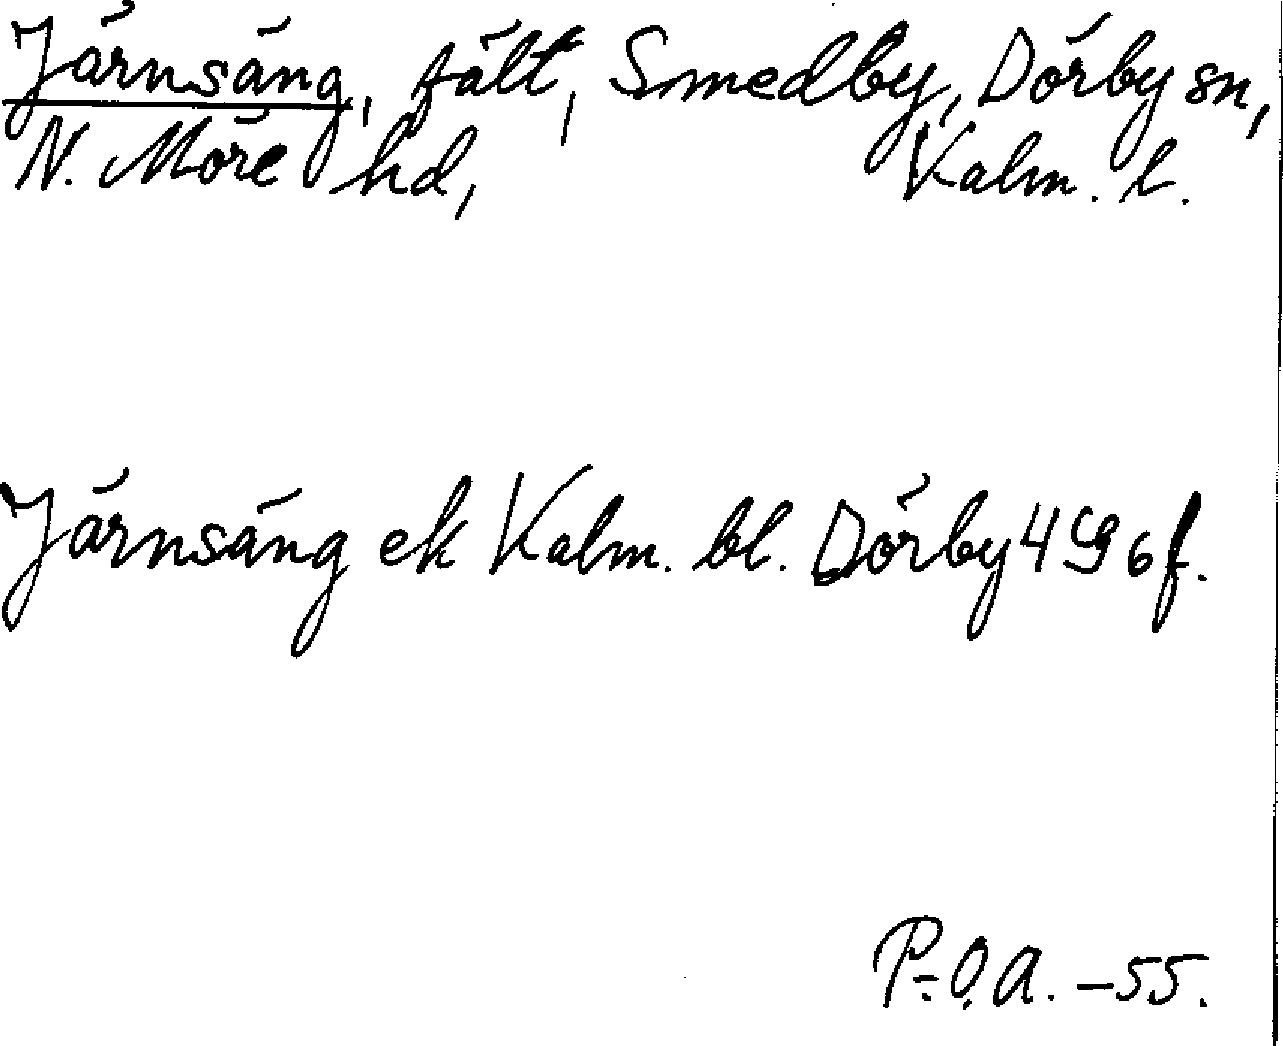 Järnsäng, fält, Smedby, Dörby sn,
N. Möre hd, Kalm. l.
Järnsäng ek Kalm. bl. Dörby 4G 6 f.
P.-O.A. -55.